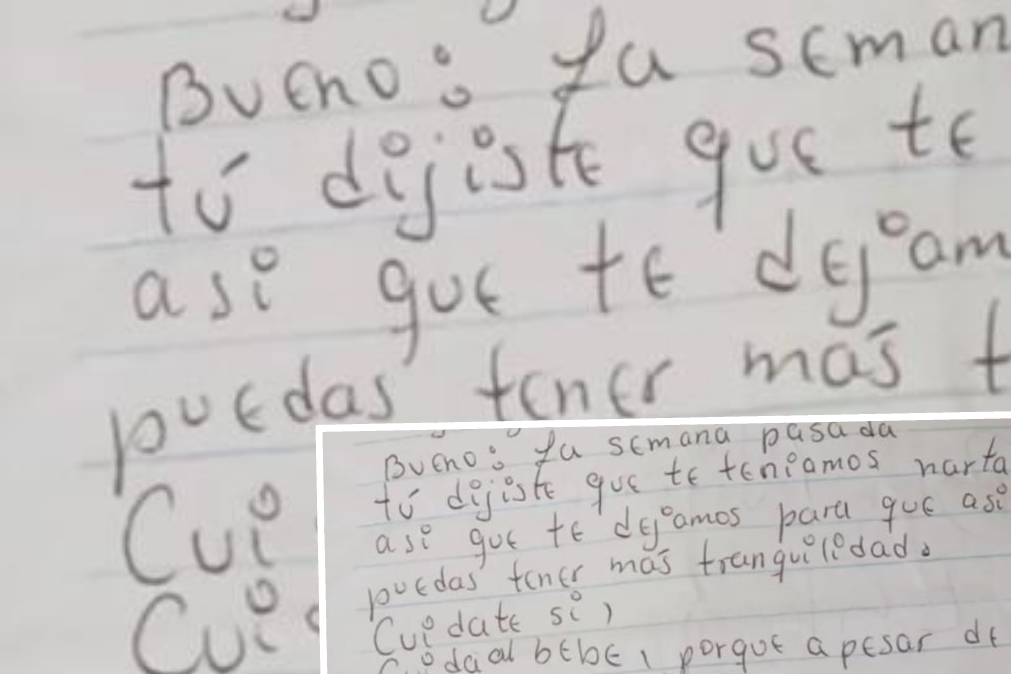 Bueno: La seman
tú dijiste que te
así que te dejam
puedas tener más t
Cui
Cui
Bueno: La semana pasada
tú dijiste que te teníamos harta
así que te dejamos para que así
puedas tener más tranquilidad.
Cuídate sí,
Cuida al bebe, porque a pesar de